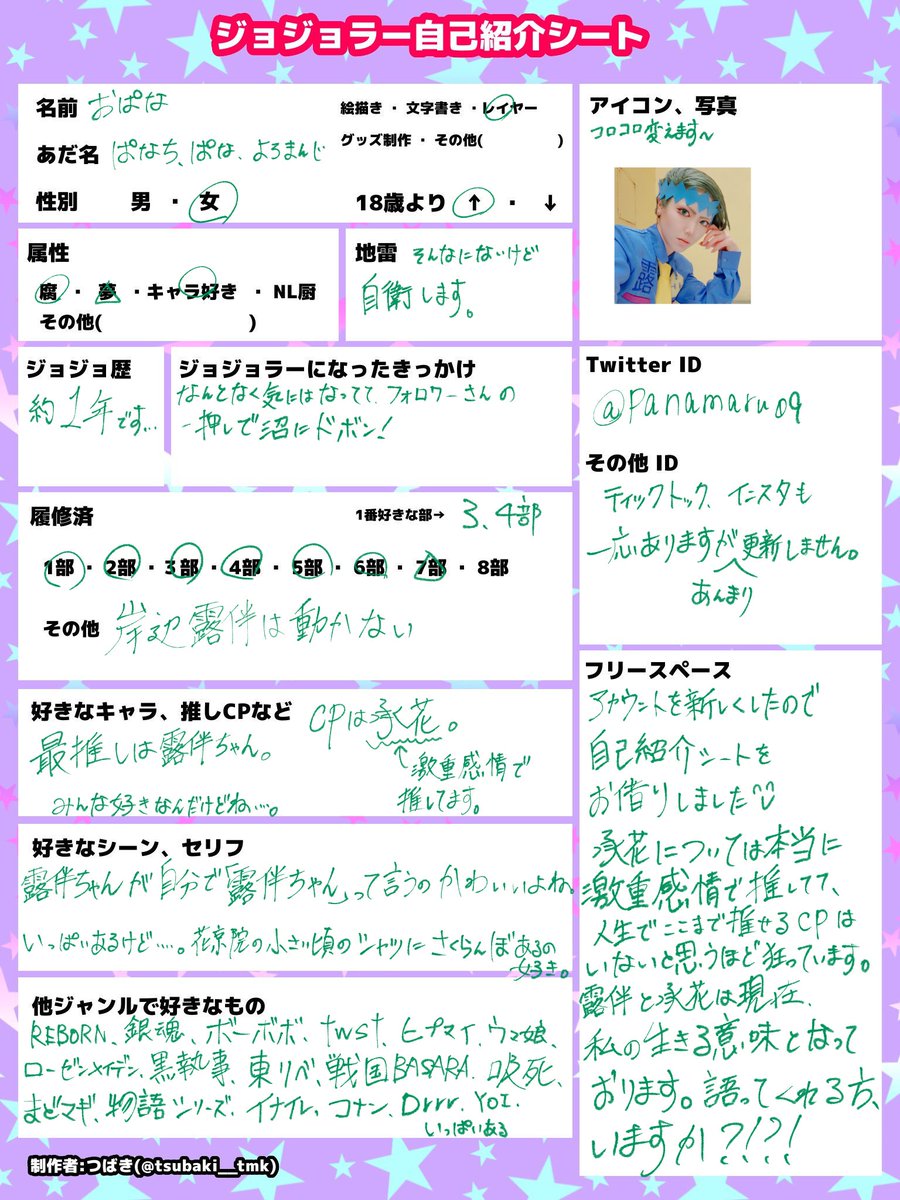 ジョジョラー自己紹介シート
名前 おぱな
あだ名 ぱなち、ぱな、よろまんじ
性別 男 ・ 女
絵描き ・ 文字書き ・ レイヤー
グッズ制作 ・ その他( )
18歳より ↑ ・ ↓
アイコン、写真
コロコロ変えます〜
属性
腐 ・ 夢 ・ キャラ好き ・ NL厨
その他( )
地雷 そんなにないけど
自衛します。
ジョジョ歴
約1年です…
ジョジョラーになったきっかけ
なんとなく気にはなってて、フォロワーさんの
一押しで沼にドボン!
Twitter ID
@panamaru09
その他 ID
ティックトック、インスタも
一応ありますが更新しません。
あんまり
履修済 1番好きな部→ 3、4部
1部 ・ 2部 ・ 3部 ・ 4部 ・ 5部 ・ 6部 ・ 7部 ・ 8部
その他 岸辺露伴は動かない
好きなキャラ、推しCPなど
最推しは露伴ちゃん。
みんな好きなんだけどね…。
CPは承花。
↑激重感情で
推してます。
好きなシーン、セリフ
露伴ちゃんが自分で「露伴ちゃん」って言うのかわいいよね。
いっぱいあるけど……。花京院の小さい頃のシャツにさくらんぼあるの
好き。
他ジャンルで好きなもの
REBORN、銀魂、ボーボボ、twst、ヒプマイ、ウマ娘、
ローゼンメイデン、黒執事、東リベ、戦国BASARA、吸死、
まどマギ、物語シリーズ、イナイレ、コナン、Drrr、YOI、
いっぱいある
フリースペース
アカウントを新しくしたので
自己紹介シートを
お借りしました
承花については本当に
激重感情で推してて、
人生でここまで推せるCPは
いないと思うほど狂っています。
露伴と承花は現在、
私の生きる意味となって
おります。語ってくれる方、
いますか?!?!
制作者:つばき(@tsubaki__tmk)